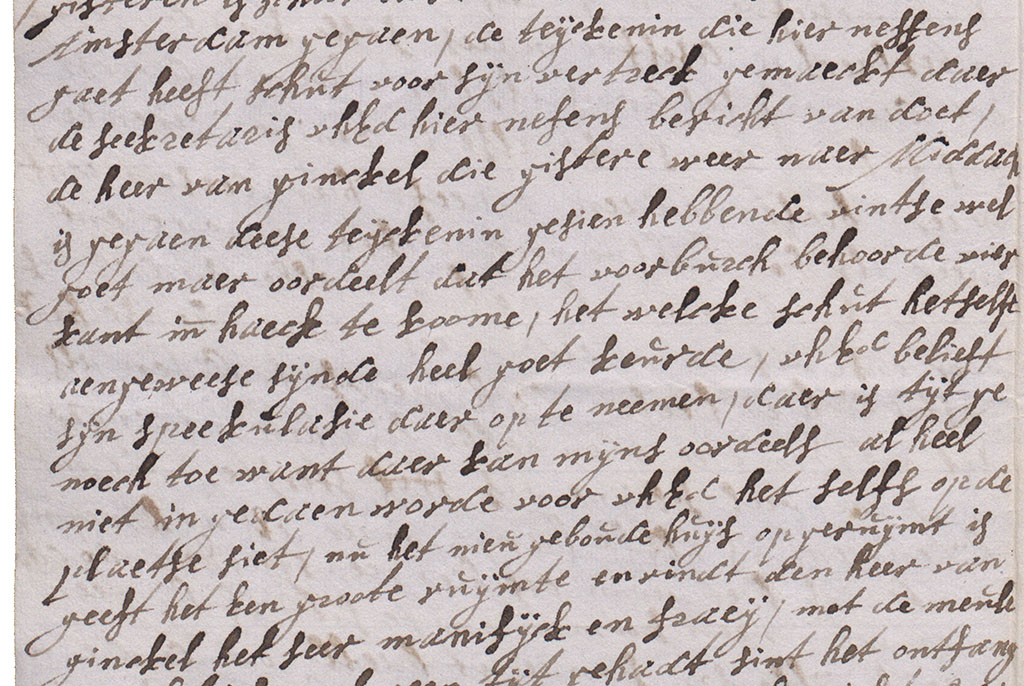 gisteren is
Amsterdam gegaen, de teijckenin die hier neffens
gaet heeft schut voor sijn vertreck gemaeckt daer
de seekretaris uhEd hier nefens bericht van doet,
de heer van ginckel die gistere weer naer Middach
is gegaen deese teijckenin gesien hebbende vintse wel
goet maer oordeelt dat het voorburch behoorde vier
kant in haeck te koome, het welcke schut hetselfe
aengeweese sijnde heel goet keurde, uhEd belieft
sijn speekulasie daer op te neemen, daer is tijt ge
noech toe want daer kan mijns oordeels al heel
niet in gedaen worde voor uhEd het selfs op de
plaetse siet, nu het nieu geboude huijs opgeruijmt is
geeft het een groote ruijmte en vindt den heer van
ginckel het seer manifijck en fraeij, met de meule
tijt gehadt sint het ontfang